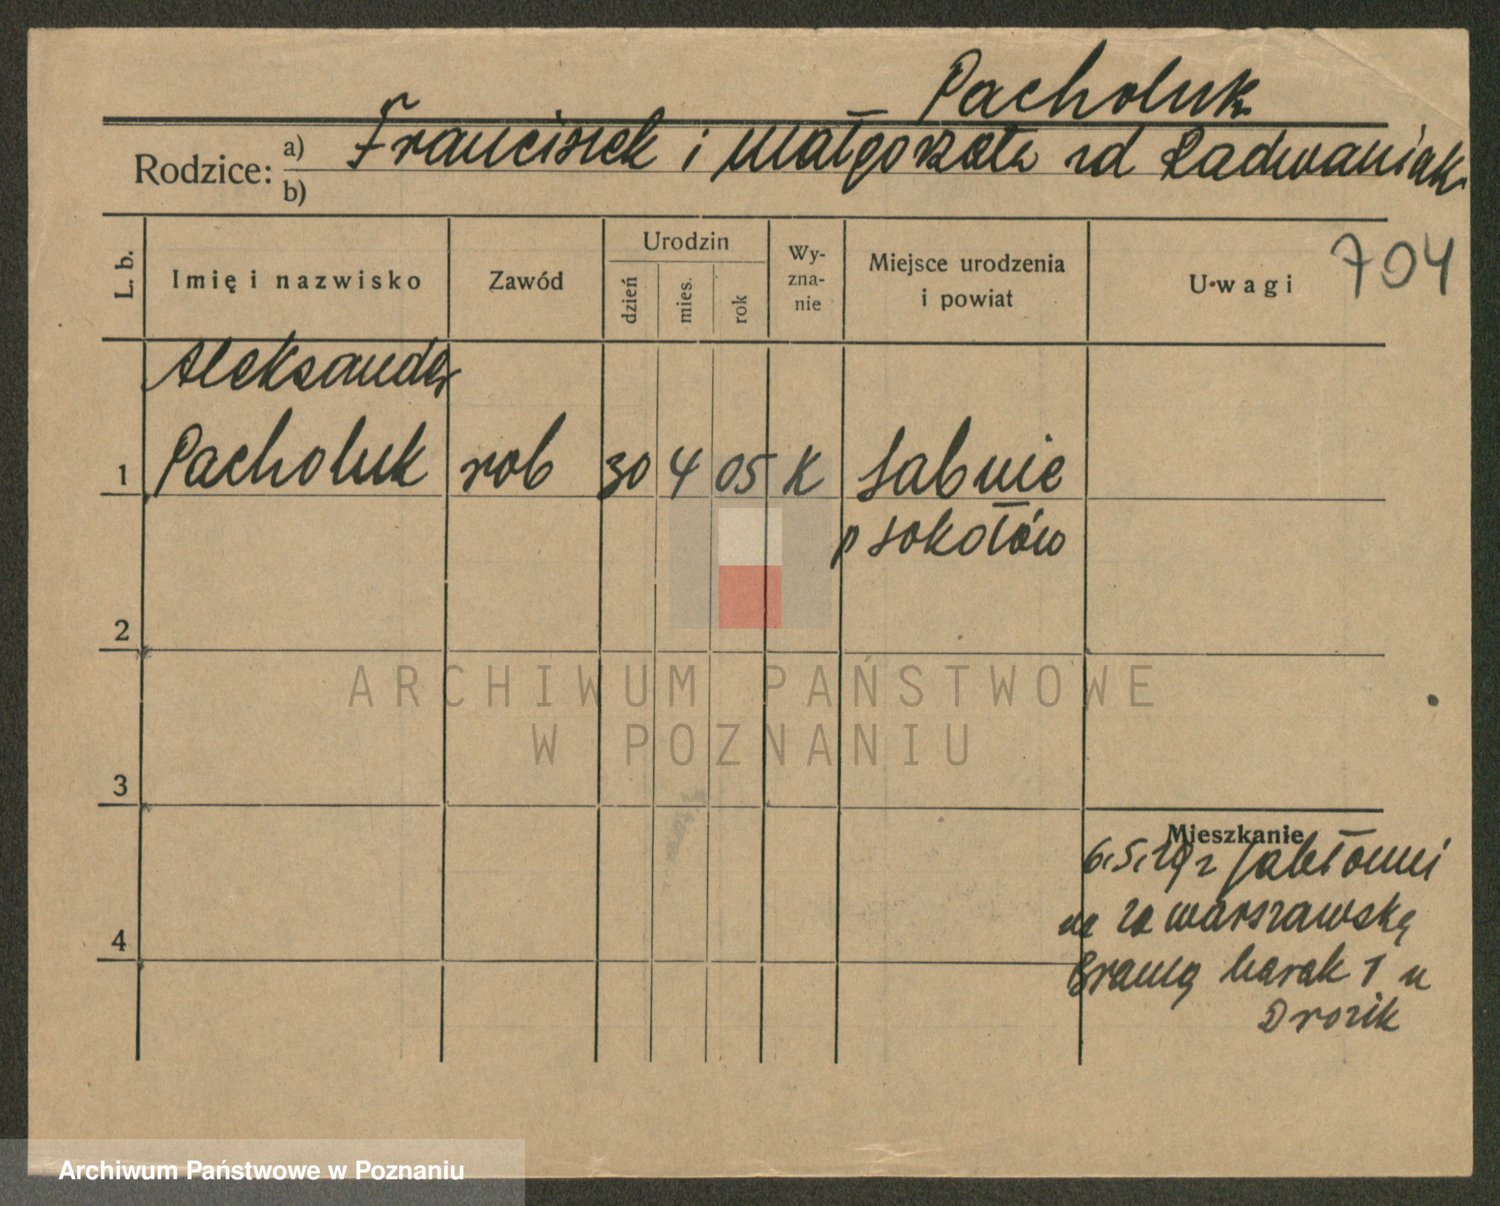 Pacholuk
Rodzice: a) b) Franciszek i Małgorzata zd Radwaniak
L. b. Imię i nazwisko Zawód Urodzin dzień mies. rok Wy-zna-nie Miejsce urodzenia i powiat U·w a g i 704
Aleksander
1 Pacholuk rob 30 4 05 K Sabnie
p Sokołów
2
ARCHIWUM PAŃSTWOWE
W POZNANIU
3
Mieszkanie
6.5.29 z Jabłonni
na za warszawską
4
Bramą barak 1 u
Drozik
Archiwum Państwowe w Poznaniu